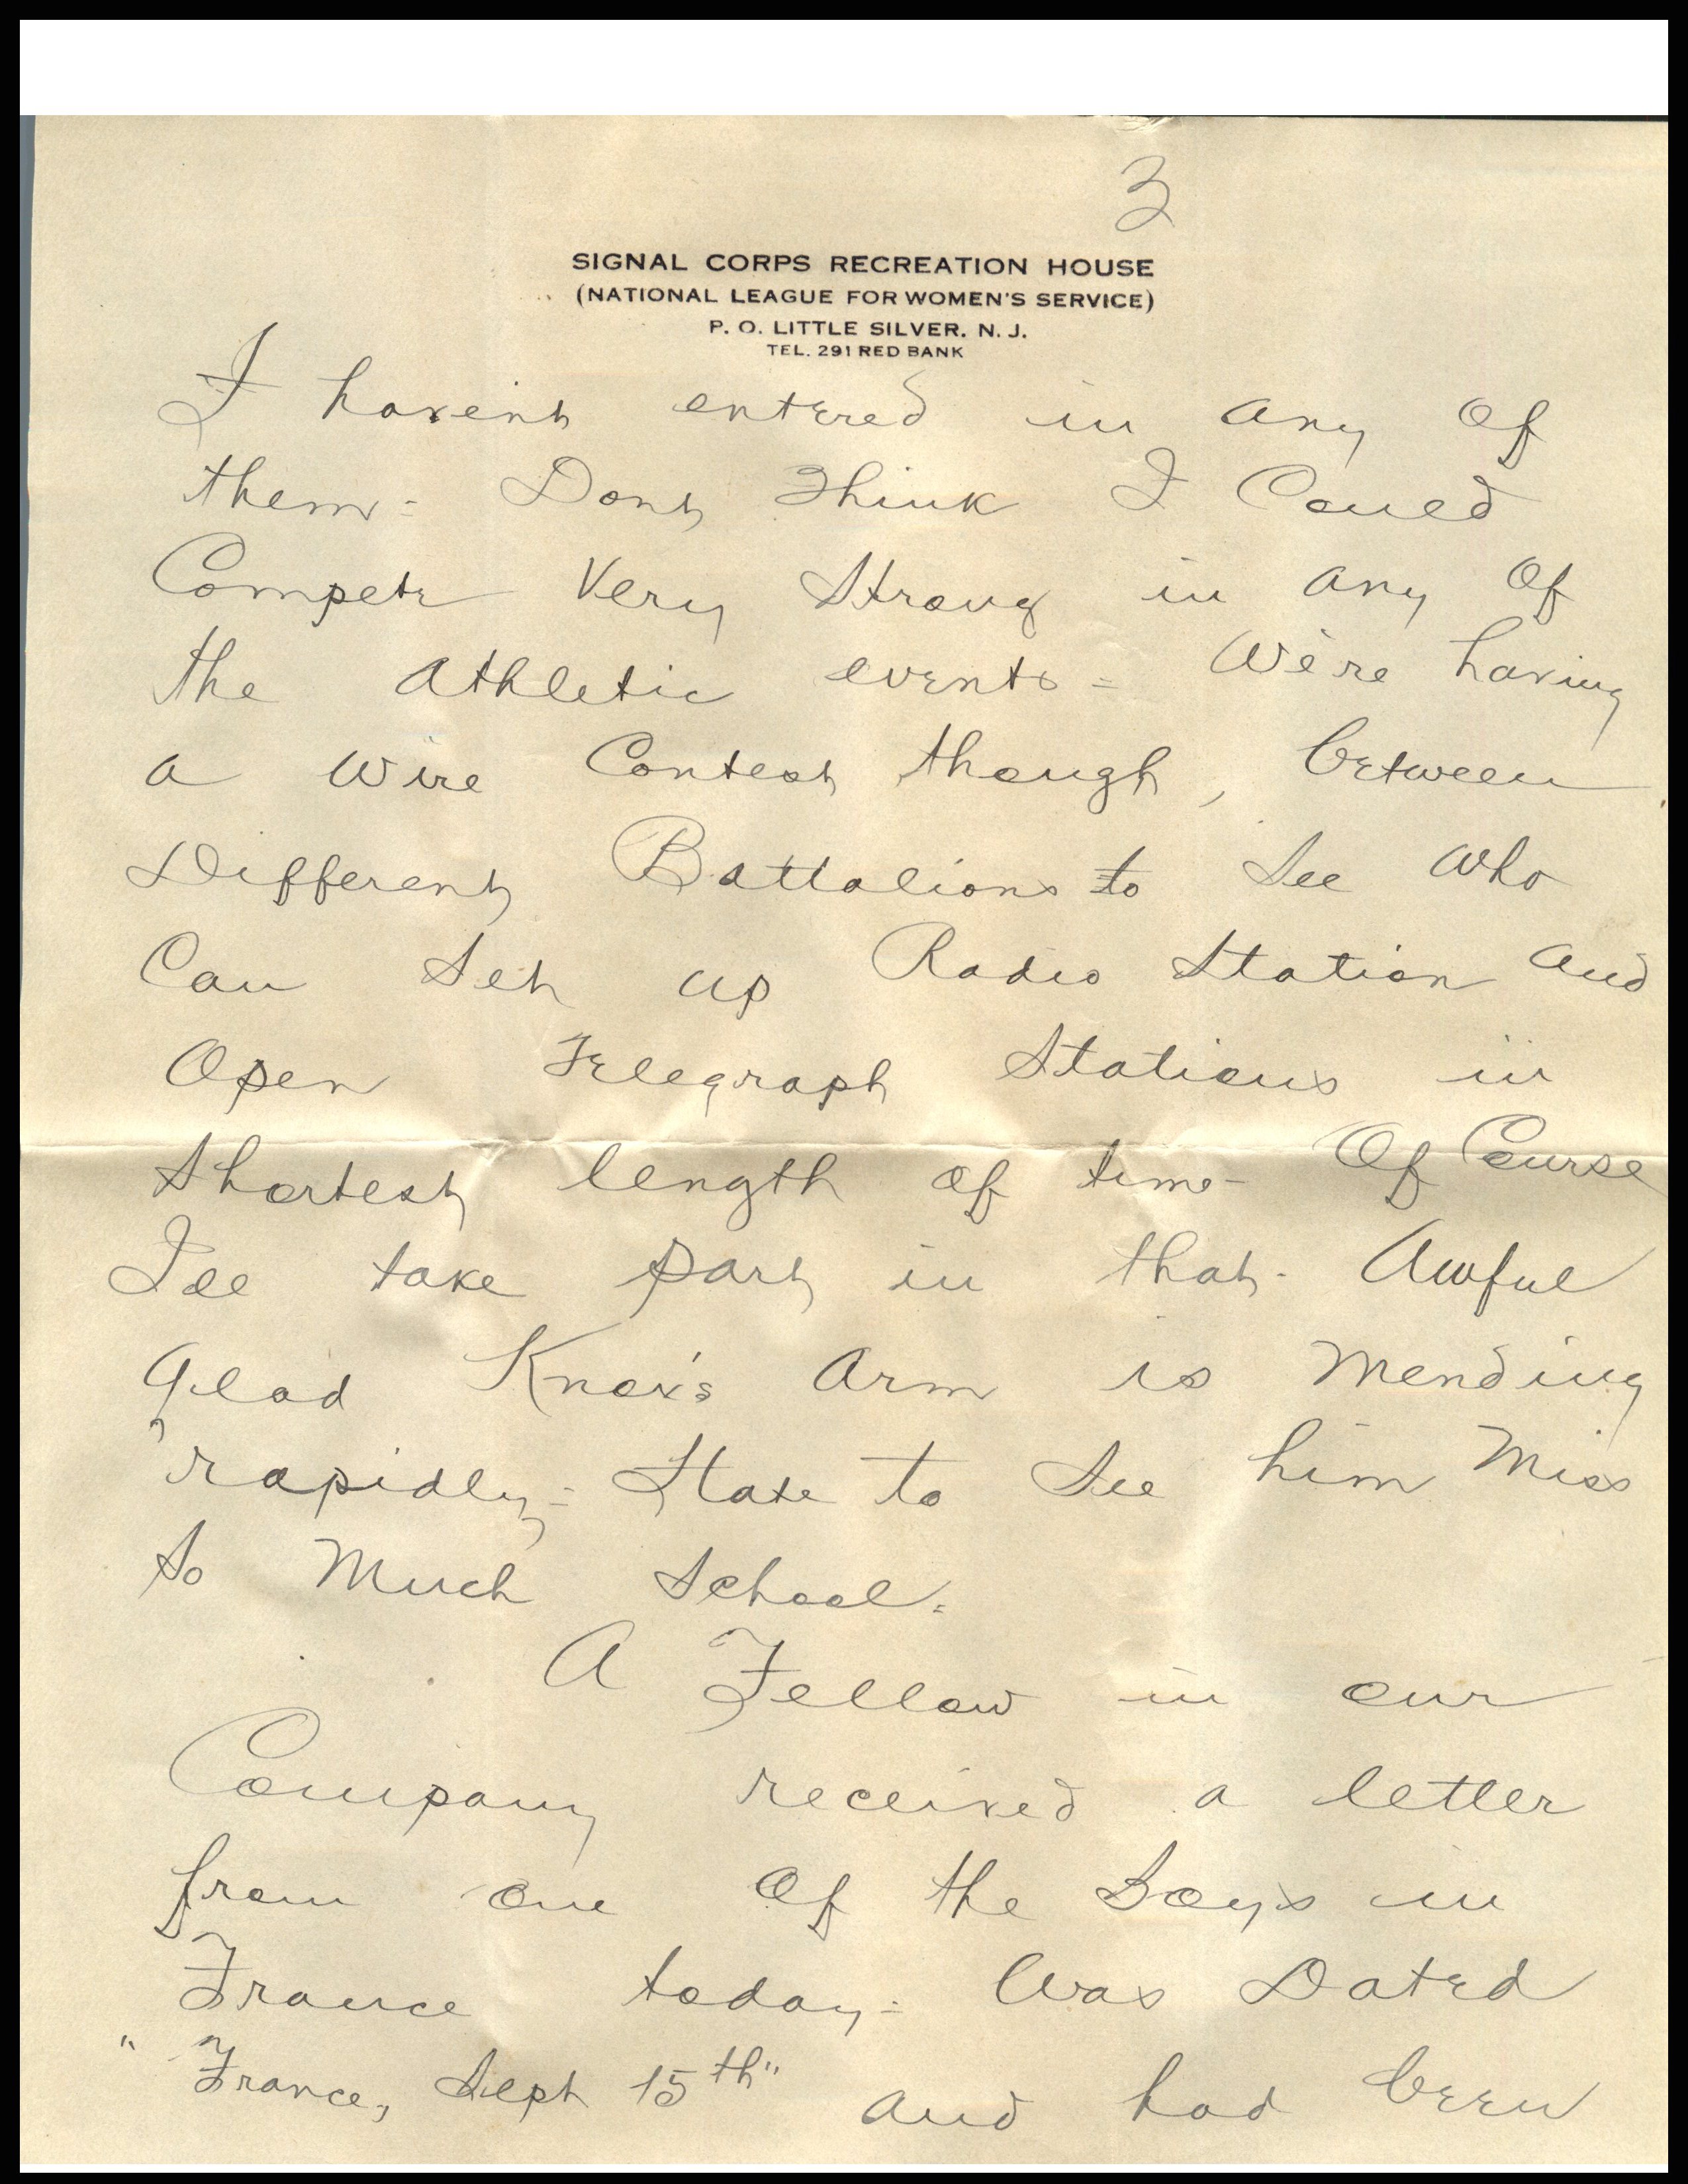 3
SIGNAL CORPS RECREATION HOUSE
(NATIONAL LEAGUE FOR WOMEN'S SERVICE)
P. O. LITTLE SILVER, N. J.
TEL. 291 RED BANK
I havent entered in any Of
them - Dont Think I Could
Compete Very Strong in any Of
the athletic events = We're having
a Wire Contest though, between
Different Battalions to See Who
Can Set up Radio Station and
Open Telegraph Stations in
Shortest length of time - Of Course
I'll take part in that - Awful
Glad Knox's arm is Mending
rapidly = Hate to See him Miss
So Much School =
A Fellow in our
Company received a letter
from one Of the Boys in
France today = Was Dated
"France, Sept 15th" and had been